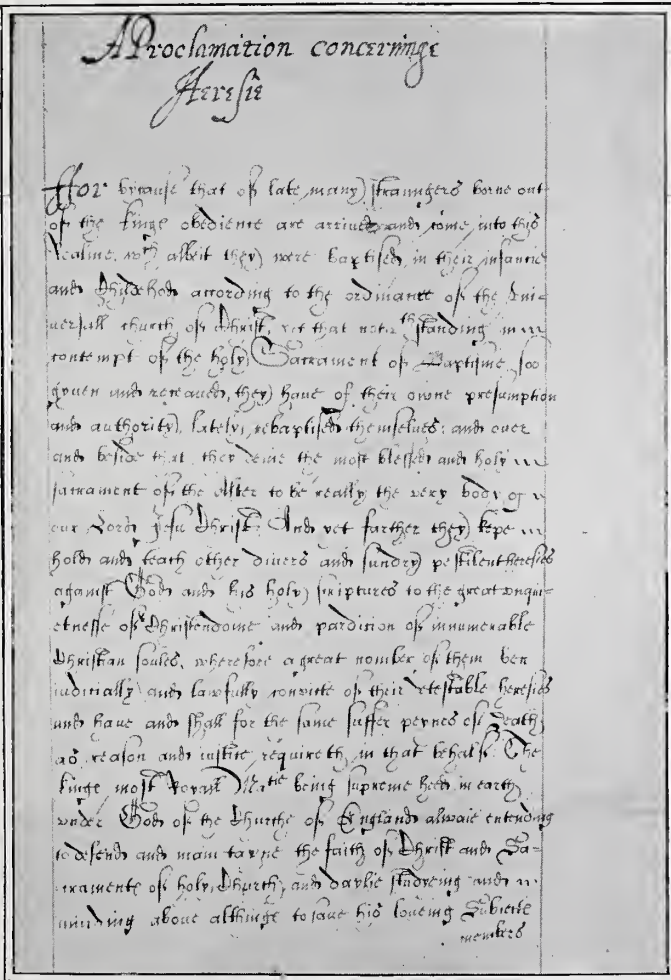 A Proclamation concerninge
Heresie
Ffor bycause that of late, many straungers borne out
of the kinge obedience are arrived and come into this
realme, wch albeit they were baptised in their infancie
and Childehod, according to the ordinance of the Uni-
versall church of Christ, yet that notwthstanding in
contempt of the holy Sacrament of Baptisme soo
gyven and receaved, they have of their owne presumption
and authority, lately rebaptised themselves: and over
and beside that, they denie the most blessed and holy
sacrament of the Alter to be really the very body of
our Lord Jesu Christ. And yet further they kepe
hold and teach other divers and sundry pestilent heresies
against God and his holy scriptures to the great unqui-
etnesse of Christendome and pardition of innumerable
Christian soules, wherefore a great nomber of them ben
iudicially and lawfully convicte of their detestable heresies
and have and shall for the same suffer peynes of death,
as reason and iustice requireth in that behalf. The
kinge most Royall Matie being supreme heed in earth
under God of the Churche of England alwaie entending
to defend and maintayne the faith of Christ and Sa-
cramente of holy Church, and daylie studyeing and
minding above althinge to save his loveing Subiecte
members